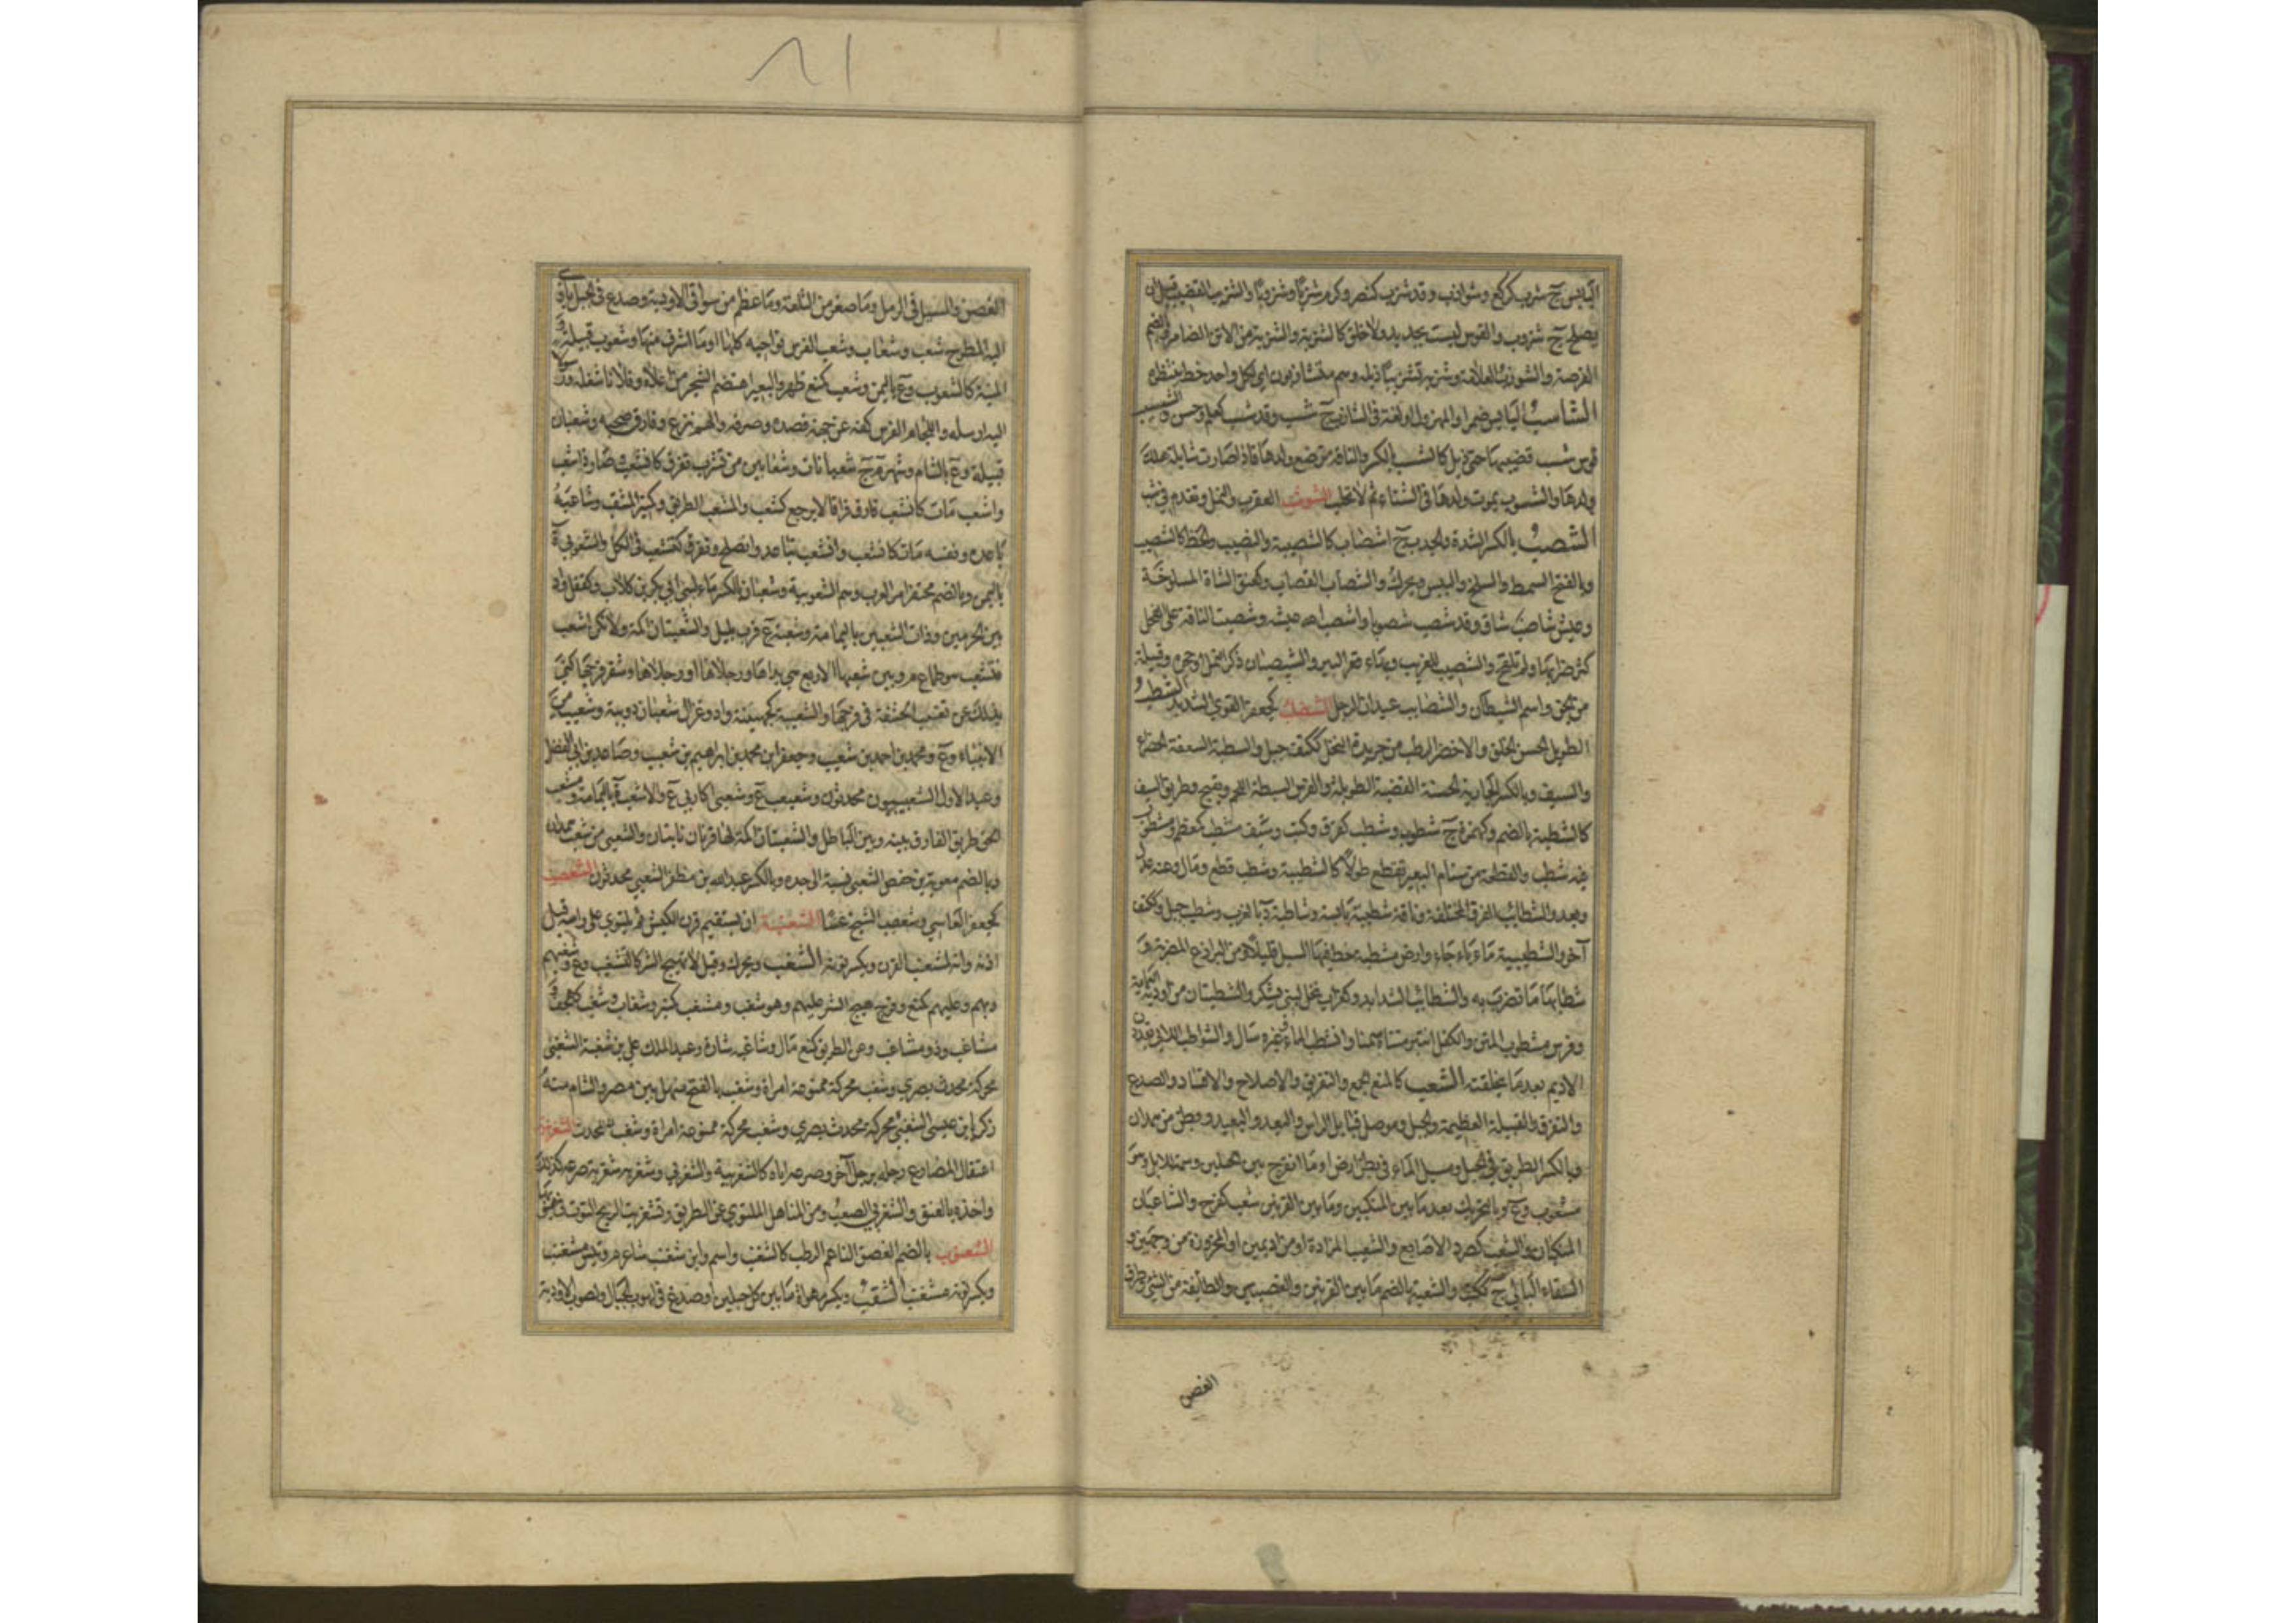 اليابس ج شزب كركع وشوازب وقد شزب كنصر وكرم شزبا وشزوبا والشزيب القضيب قبل ان
يصلح ج شزوب والقوس ليست بجديد ولا خلق كالشزبة والشزبة من الاتن الضامر وبالضم
الفرصة والشوزب العلامة وشزبه تشزيبا ذبله وهم متشازبون اي لكل واحد حظ ينتظره
الشاسب اليابس ضمرا والمهزول او لغة في الشازب ج شسب وقد شسب كعلم وحسن والشسيب
قوس شسب قضيبها حتى ذبل كالشسب بالكسر والناقة ترضع ولدها فاذا صارت شايلة هلك
ولدها والشسوب يموت ولدها في الشتاء ثم لا تحلب الشوشب العقرب والنمل وتقدم في شب
الشصب بالكسر الشدة والجدب ج اشصاب كالشصيبة والنصيب والحظ كالشصيب
وبالفتح السمط والسلخ واليبس ويحرك والشصاب القصاب وكعنق الشاة المسلوخة
وعيش شاصب شاق وقد شصب شصوبا واشصب الله عيشه وشصبت الناقة على الفحل
كثر ضرابها ولم تلقح والشصيب الغريب وبهاء قعر البير والشيصبان ذكر النمل او جحره وقبيلة
من الجن واسم الشيطان والشصايب عيدان الرحل الشضب كجعفر القوي الشديد الشطب
الطويل الحسن الخلق والاخضر الرطب من جريدة النخل ككتف جبل والشطبة السعفة الخضراء
والسيف وبالكسر الجارية الحسنة الغضة الطويلة والفرس السبطة اللحم ويفتح وطريق السيف
كالشطبة بالضم وكهمزة ج شطوب وشطب كغرف وكتب وسيف مشطب كمعظم ومشطوب
فيه شطب والقطعة من سنام البعير تقطع طولا كالشطيبة وشطب قطع ومال وعنه عدل
وبعد والشطائب الفرق المختلفة وناقة شطيبة يابسة وشاطبة د بالغرب وشطب جبل وككتف
آخر والشطيبية ماء باجاء وارض مشطبة خط فيها السيل قليلا ومن البراذع المضربة و
شطابها ما تضرب به والشطائب الشدايد وكغراب نخل لبني يشكر والشطبتان من اودية اليمامة
وفرس مشطوب المتن والكفل انتبر متناه سمنا وانشطب الماء وغيره سال والشواطب اللاتي يقددن
الاديم بعد ما يخلقنه الشعب كالمنع الجمع والتفريق والاصلاح والافساد والصدع
والتفرق والقبيلة العظيمة والجبل وموصل قبايل الراس والبعد والبعيد وبطن من همدان
وبالكسر الطريق في الجبل ومسيل الماء في بطن ارض او ما انفرج بين الجبلين وسمة للابل وهو
مشعوب وع وبالتحريك بعد ما بين المنكبين وما بين القرنين شعب كفرح والشاعبان
المنكبان والشعب كصرد الاصابع والشعيب المزادة او من اديمين او المخروزة من وجهين و
السقاء البالي ج ككتب والشعبة بالضم ما بين القرنين والغصنين والطائفة من الشيء وطرف
الغصن
الغصن والمسيل في الرمل وما صغر من التلعة وما عظم من سواقي الاودية وصدع في الجبل ياوي
اليه المطر ج شعب وشعاب وشعب الفرس نواحيه كلها او ما اشرف منها وشعوب قبيلة و
المنية كالشعوب وع باليمن وشعب كمنع ظهر والبعير اهتضم الشجر من اعلاه وفلانا شغله ورسولا
اليه ارسله واللجام الفرس كفه عن جهة قصده وصرفه واليهم نزع وفارق صحبه وشعبان
قبيلة وع بالشام وشهر م ج شعبانات وشعابين من تشعب تفرق كانشعب وصار ذا شعب
واشعب مات كانشعب فارق فراقا لا يرجع كشعب والمشعب الطريق وكمنبر المثقب وشاعبه
باعده ونفسه مات كانشعب وانشعب تباعد وانصلح وتفرق كتشعب في الكل والشعوبي ة
باليمن وبالضم محتقر امر العرب وهم الشعوبية وشعبان بالكسر ماء لبني ابي بكر بن كلاب وكقفل واد
بين الحرمين وذات الشعبين باليمامة وشعبة ع قرب يليل والشعبتان اكمة ولا تكن اشعب
فتتعب هو طماع م وبين شعبها الاربع هي يداها ورجلاها او رجلاها وشفر فرجها كني
بذلك عن تغييب الحشفة في فرجها والشعيبة كجهينة واد وغزال شعبان دويبة وشعيب من
الانبياء وع ومحمد بن احمد بن شعيب وجعفر بن محمد بن ابراهيم بن شعيب وصاعد بن ابي الفضل
وعبد الاول الشعيبيون محدثون وشعبعب ع وشعبى كاربى ع والاشعب ة باليمامة ومشعب
الحق طريق الفارق بينه وبين الباطل والشعبتان اكمة لها قرنان ناتئان والشعبي من شعب همدان
وبالضم معوية بن حفص الشعبي نسبة الى جده وبالكسر عبد الله بن مظفر الشعبي محدثون الشعصب
كجعفر العاسي وشعصب الشيخ عسا الشعنبة ان يستقيم قرن الكبش ثم يلتوي على راسه قبل
اذنه وانه لشعنب القرن وبكسر نونه الشغب ويحرك وقيل لا تهييج الشر كالتشغيب وع وشغبهم
وبهم وعليهم كمنع وفرح هيج الشر عليهم وهو شغب ومشغب كمنبر وشغاب وشغب كهجف و
مشاغب وذو مشاغب وعن الطريق كمنع مال وشاغبه شاره وعبد الملك علي بن شغبة الشغبي
محركة محدث بصري وشغب محركة ممنوعة امراة وشغب بالفتح منهل بين مصر والشام منه
زكريا بن عيسى الشغبي محركة محدث بصري وشغب محركة ممنوعة امراة وشغب محدث الشغزبية
اعتقال المصارع رجله برجل آخر وصرعه اياه كالشغزبية والشغزبي وشغزبه شغزبة صرعه كذلك
واخذه بالعنف والشغزبي الصعب ومن المناهل الملتوي عن الطريق وتشغزبت الريح التوت في هبوبها
الشغنوب بالضم الغصن الناعم الرطب كالشغنب واسم وابن شغنب شاعر م وتيس مشغنب
وبكسر نونه مشعنب الشقب ويكسر مهواة ما بين كل جبلين او صدع في لهوب الجبال ولصوب الاودية